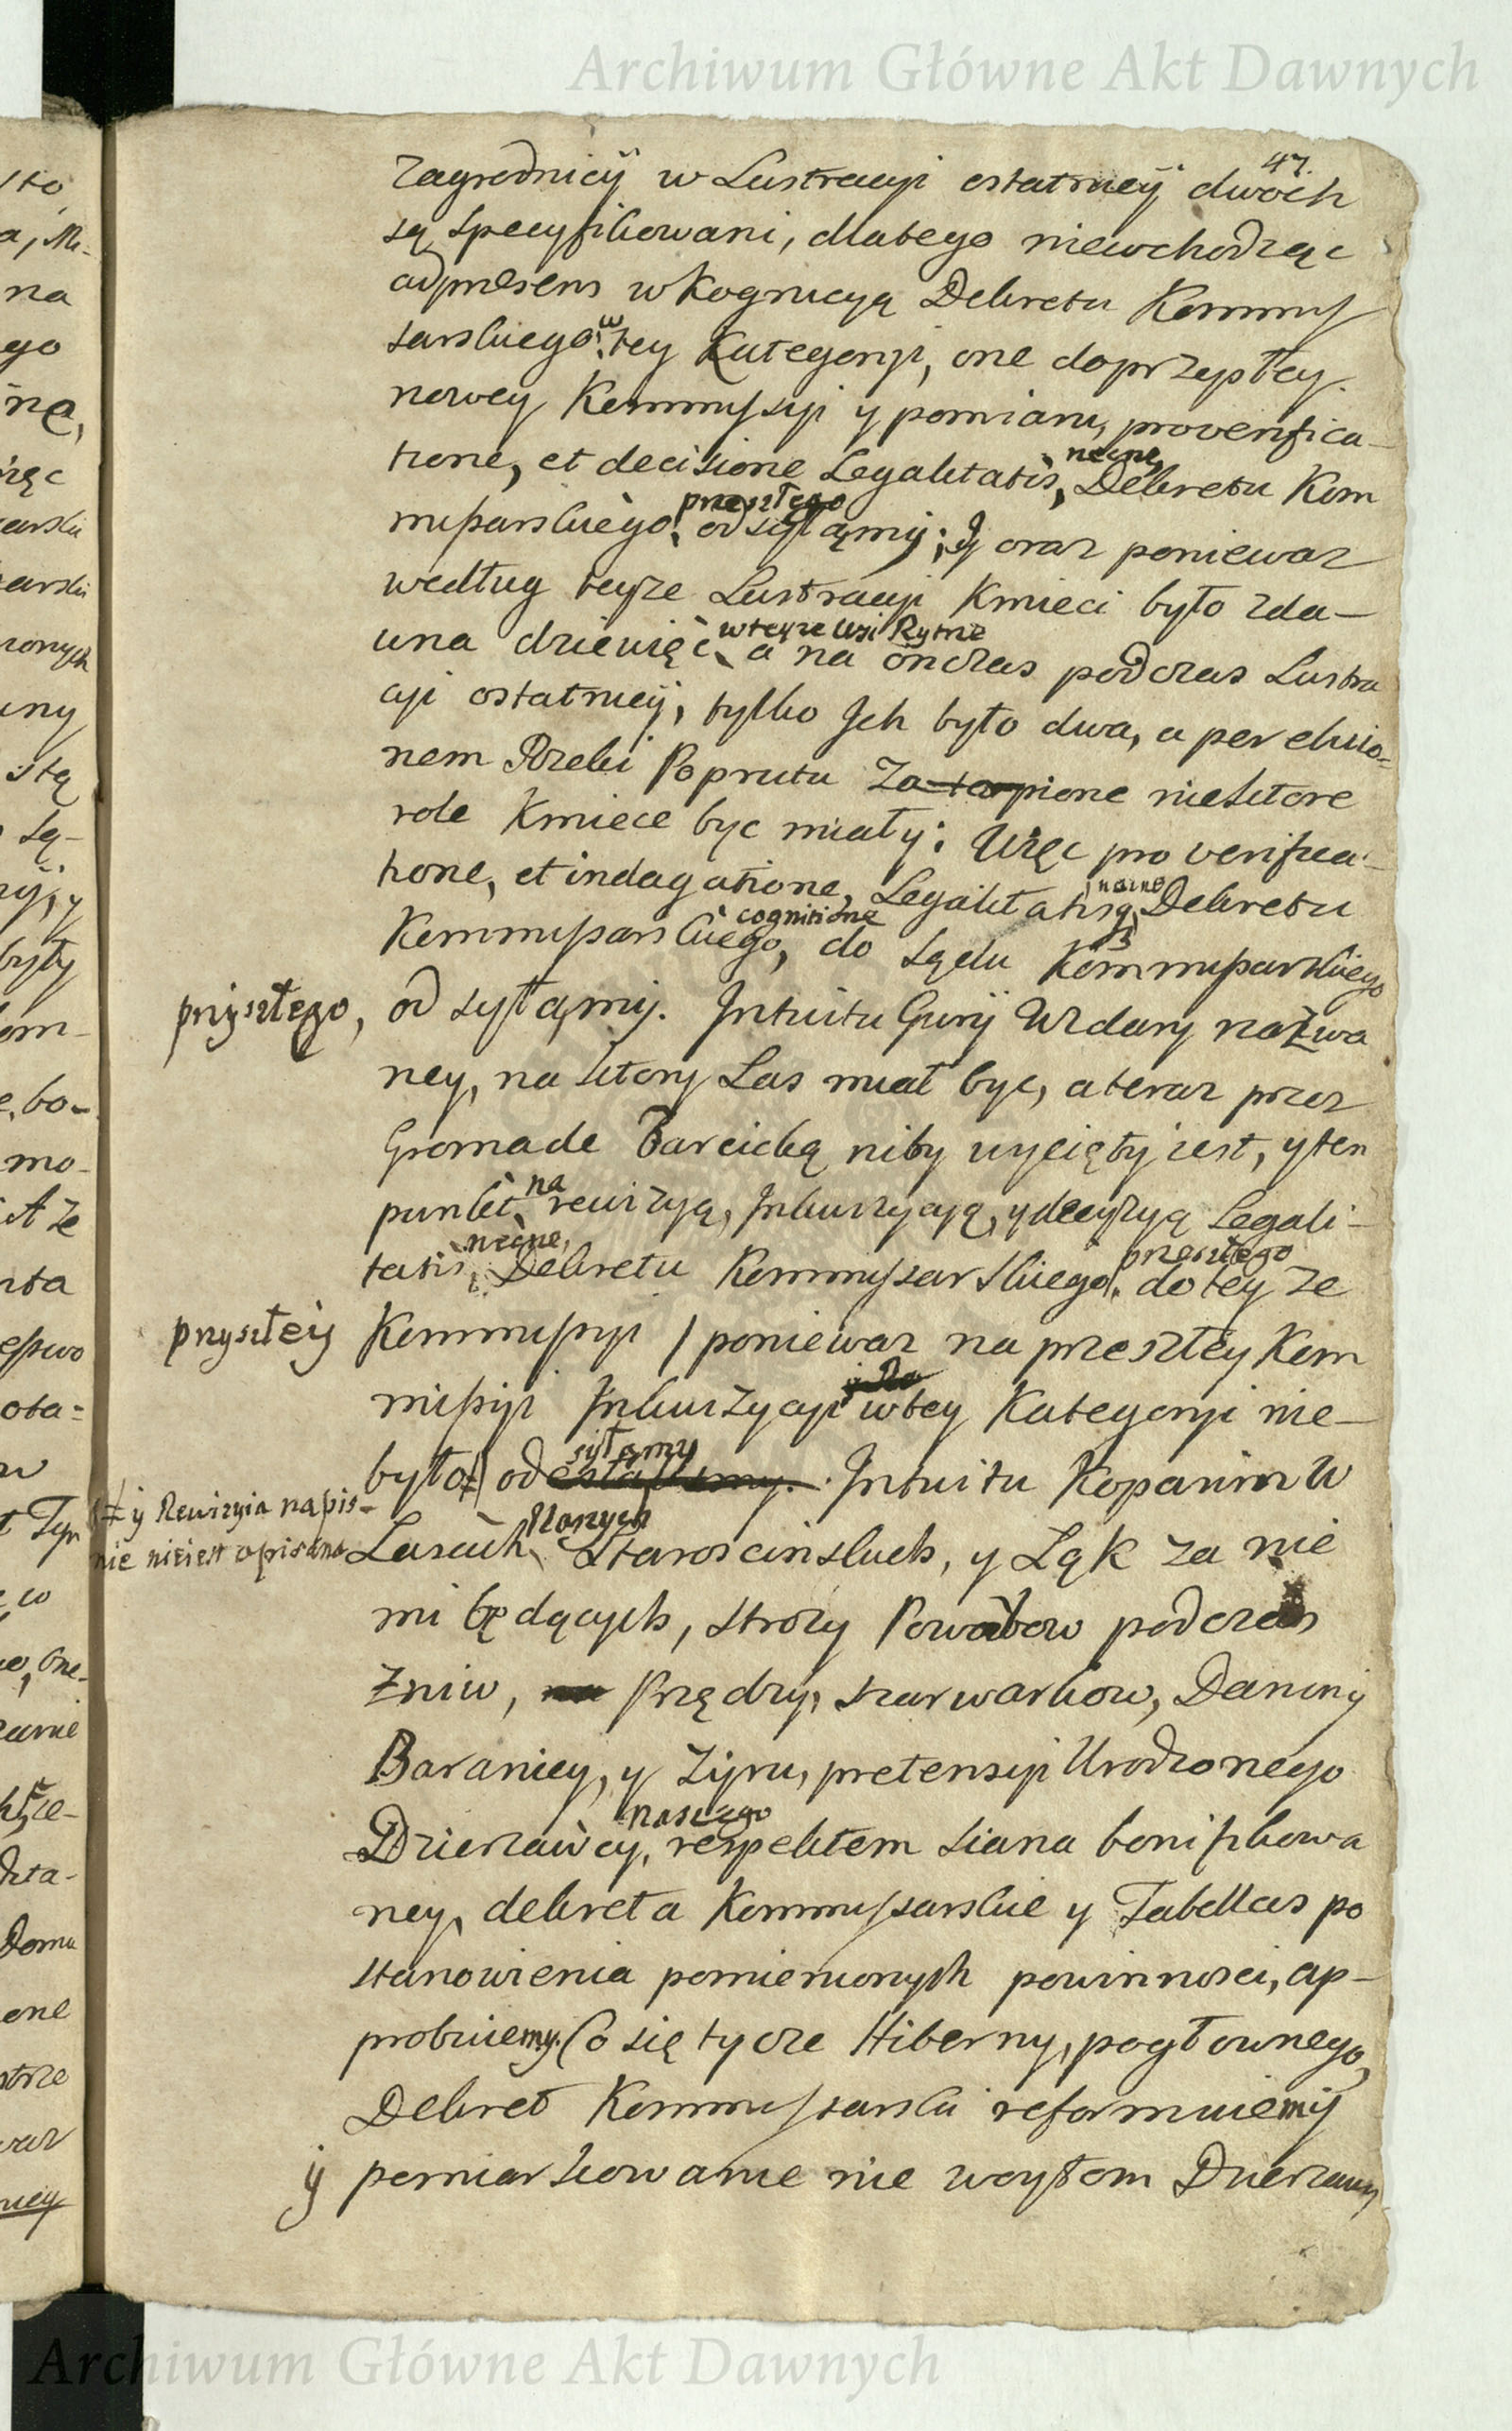 Archiwum Główne Akt Dawnych
47.
zagrodnicÿ w Lustracyi ostatnieÿ dwoch
są specyfikowani, dlatego niewchodząc
adpraesens w kognicyą Dekretu Kommis
sarskiego w tey Kategoryi, one do przyszłey
nowey Kommissyi y pomiaru, pro verifica-
tione, et decisione Legalitatis, necne, Dekretu Kom
missarskiego przeszłego odsyłamÿ; Jÿ oraz poniewaz
według teyze Lustracyi Kmieci było zda-
wna dziewięć w teyze wsi Rytrze a na onczas podczas Lustra
cyi ostatnieÿ, tylko Jch było dwa, a per eluvio-
nem Rzeki Popratu Zatopione niektore
role Kmiece byc miały; Więc pro verifica-
tione, et indagatione, Legalitatis, necne Dekretu
Kommissarskiego, cognitione do Sądu Kommissarskiego
przyszłego, odsyłamÿ. Intuitu Gurÿ Wzdary nazwa
ney, na ktory Las miał byc, a teraz przez
Gromade Barcicką niby wycięty iest, y ten
punkt, na rewizyą, Inkwizycyą, y decyzyą Legali-
tatis, necne, Dekretu Kommissarskiego przeszłego do teyze
przyszłeÿ Kommissyi / poniewaz na przeszłey Kom
missyi Inkwizycyi w tey Kategoryi nie-
było ≠ / odsyłamy. Intuitu Kopanin w
≠ ÿ Rewizyia napis-
nie nieiest opisana
Lasach, Naszych Starościnskich, y Ląk za nie
mi będących, strozy Powabow podczas
żniw, Przędzy, szarwarkow, Daniny
Baraniey, y żyru, pretensyi Urodzonego
Dzierzawcy, naszego respektem siana bonifikowa
ney, dekreta Kommissarskie y Tabellas po
stanowienia pomienionych powinnosci, ap-
probuiemy. Co się tycze Hiberny, pogłownego,
Dekret Kommissarski reformuiemÿ
ÿ pomiarkowanie nie woytom Dzierzawcy
Archiwum Główne Akt Dawnych